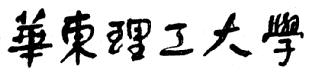 華東理工大學